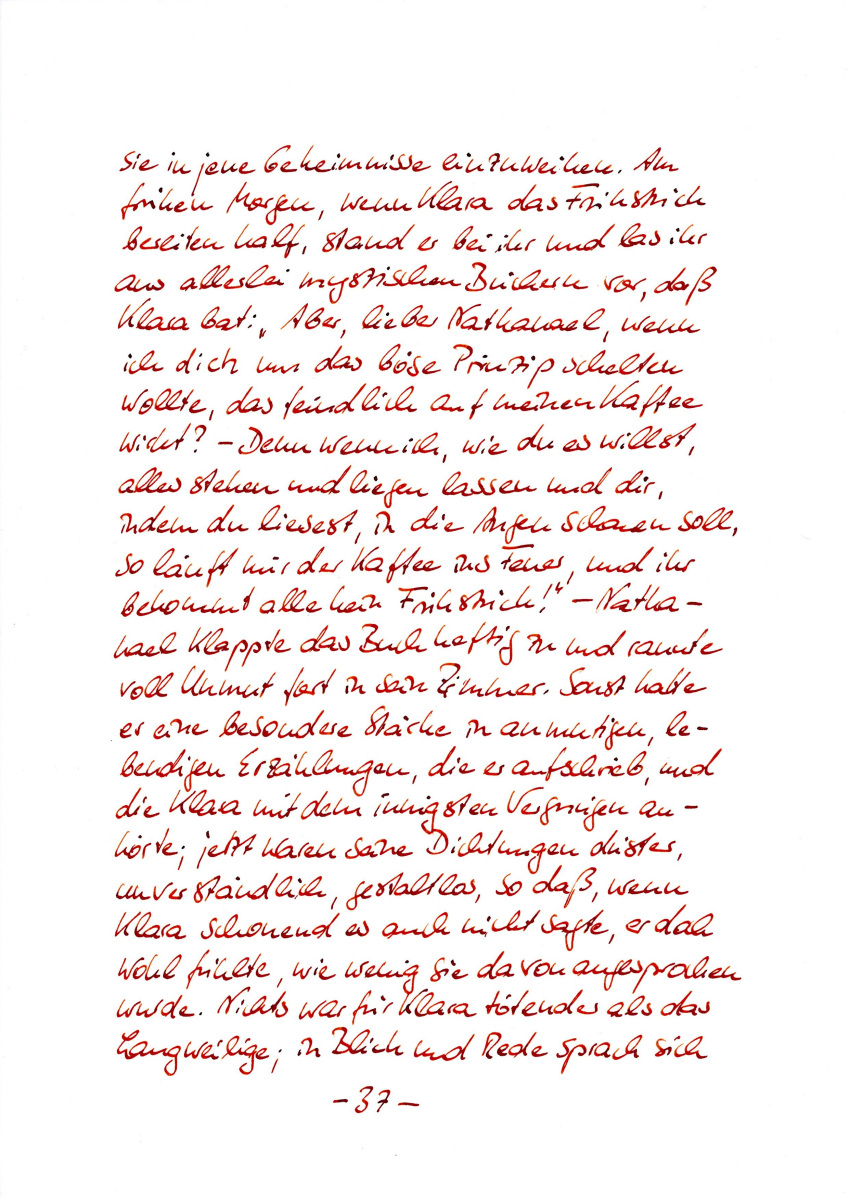 sie in jene Geheimnisse einzuweihen. Am
frühen Morgen, wenn Klara das Frühstück
bereiten half, stand er bei ihr und las ihr
aus allerlei mystischen Büchern vor, daß
Klara bat: „Aber, lieber Nathanael, wenn
ich dich nun das böse Prinzip schelten
wollte, das feindlich auf meinen Kaffee
wirkt? – Denn wenn ich, wie du es willst,
alles stehen und liegen lassen und dir,
indem du liesest, in die Augen schauen soll,
so läuft mir der Kaffee ins Feuer, und ihr
bekommt alle kein Frühstück!" – Natha–
nael klappte das Buch heftig zu und rannte
voll Unmut fort in sein Zimmer. Sonst hatte
er eine besondere Stärke in anmutigen, le–
bendigen Erzählungen, die er aufschrieb, und
die Klara mit dem innigsten Vergnügen an–
hörte; jetzt waren seine Dichtungen düster,
unverständlich, gestaltlos, so daß, wenn
Klara schonend es auch nicht sagte, er doch
wohl fühlte, wie wenig sie davon angesprochen
wurde. Nichts war für Klara tötender als das
Langweilige; in Blick und Rede sprach sich
– 37 –